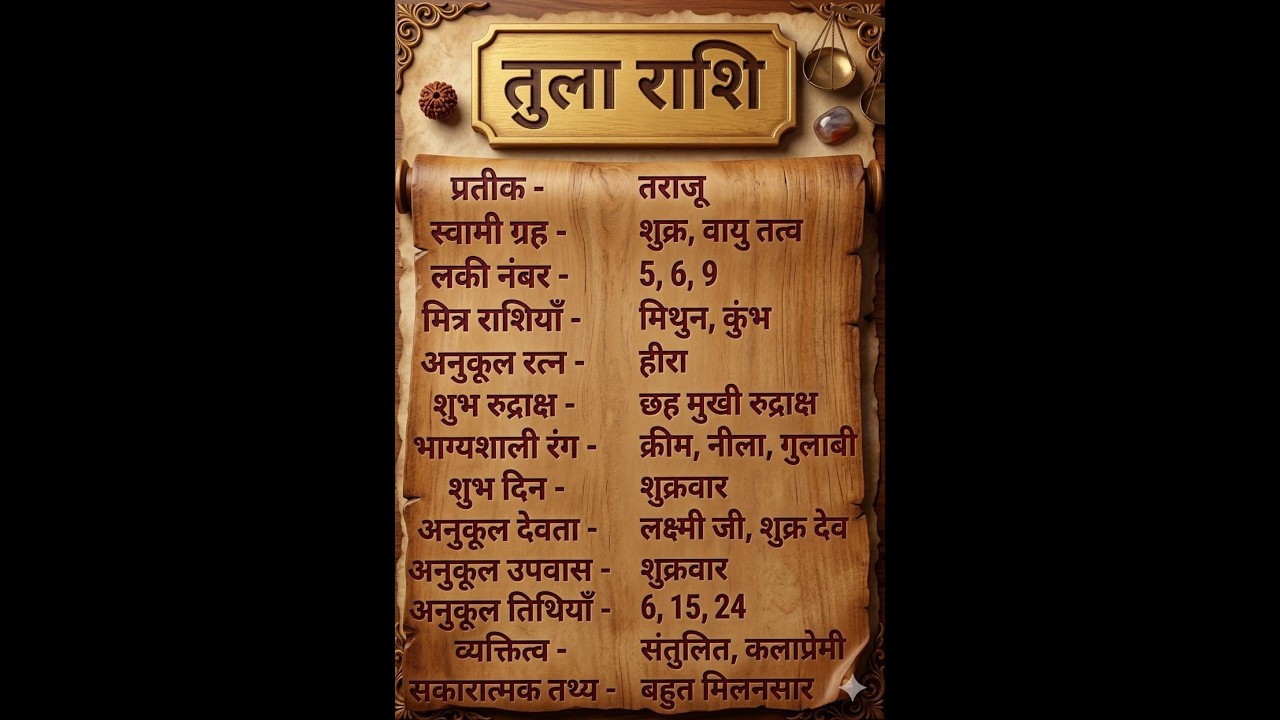 तुला राशि
प्रतीक - तराजू
स्वामी ग्रह - शुक्र, वायु तत्व
लकी नंबर - 5, 6, 9
मित्र राशियाँ - मिथुन, कुंभ
अनुकूल रत्न - हीरा
शुभ रुद्राक्ष - छह मुखी रुद्राक्ष
भाग्यशाली रंग - क्रीम, नीला, गुलाबी
शुभ दिन - शुक्रवार
अनुकूल देवता - लक्ष्मी जी, शुक्र देव
अनुकूल उपवास - शुक्रवार
अनुकूल तिथियाँ - 6, 15, 24
व्यक्तित्व - संतुलित, कलाप्रेमी
सकारात्मक तथ्य - बहुत मिलनसार